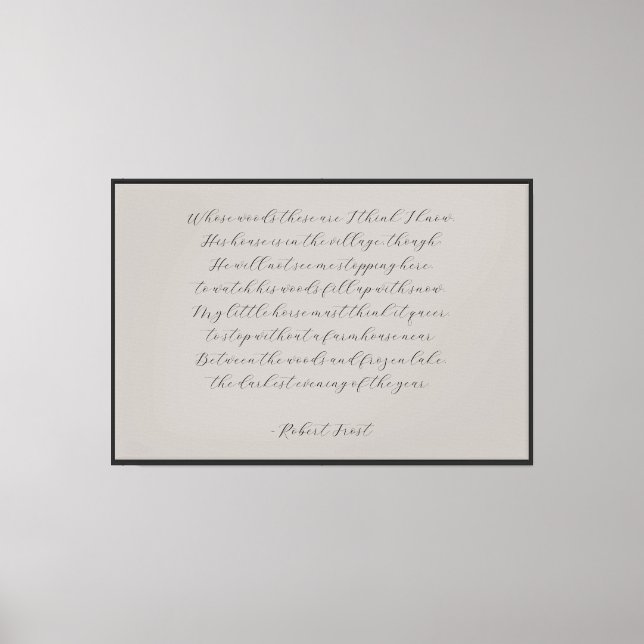 Whose woods these are I think I know.
His house is in the village, though.
He will not see me stopping here.
to watch his woods fill up with snow.
My little horse must think it queer.
to stop without a farmhouse near
Between the woods and frozen lake.
the darkest evening of the year
- Robert Frost